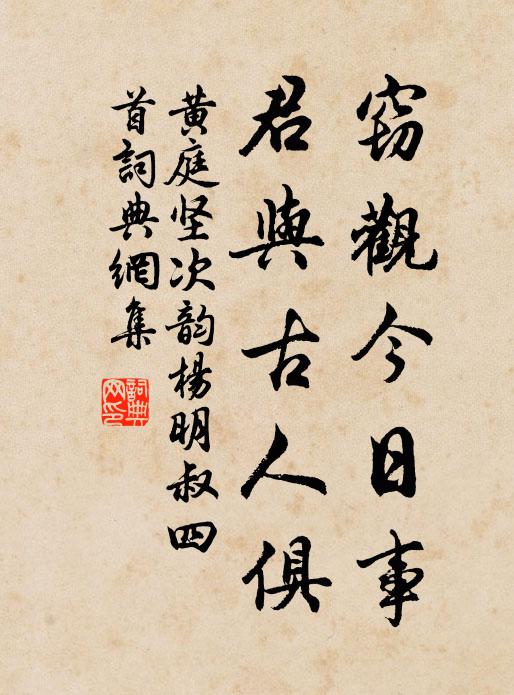 窃觀今日事
君與古人俱
黄庭坚次韵楊明叔四
首詞典網集
詞典網印